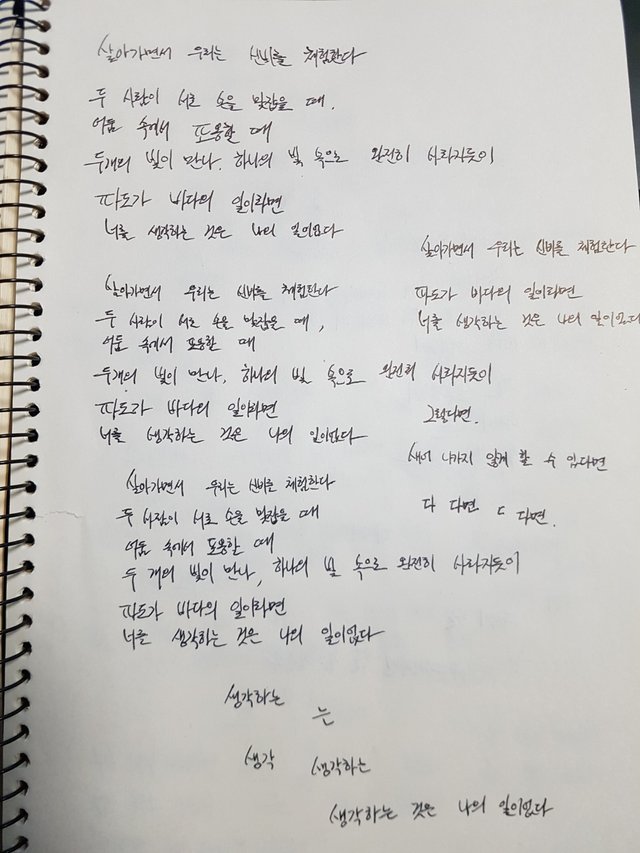 살아가면서 우리는 신비를 체험한다
두 사람이 서로 손을 맞잡을 때,
어둠 속에서 포옹할 때
두개의 빛이 만나, 하나의 빛 속으로 완전히 사라지듯이
파도가 바다의 일이라면
너를 생각하는 것은 나의 일이었다
살아가면서 우리는 신비를 체험한다
두 사람이 서로 손을 맞잡을 때,
어둠 속에서 포옹할 때
두개의 빛이 만나, 하나의 빛 속으로 완전히 사라지듯이
파도가 바다의 일이라면
너를 생각하는 것은 나의 일이었다
살아가면서 우리는 신비를 체험한다
두 사람이 서로 손을 맞잡을 때
어둠 속에서 포옹할 때
두 개의 빛이 만나, 하나의 빛 속으로 완전히 사라지듯이
파도가 바다의 일이라면
너를 생각하는 것은 나의 일이었다
살아가면서 우리는 신비를 체험한다
파도가 바다의 일이라면
너를 생각하는 것은 나의 일이었다
그렇다면,
새서 나가지 않게 할 수 있다면
다 다면 ㄷ 다면.
생각하는
는
생각 생각하는
생각하는 것은 나의 일이었다